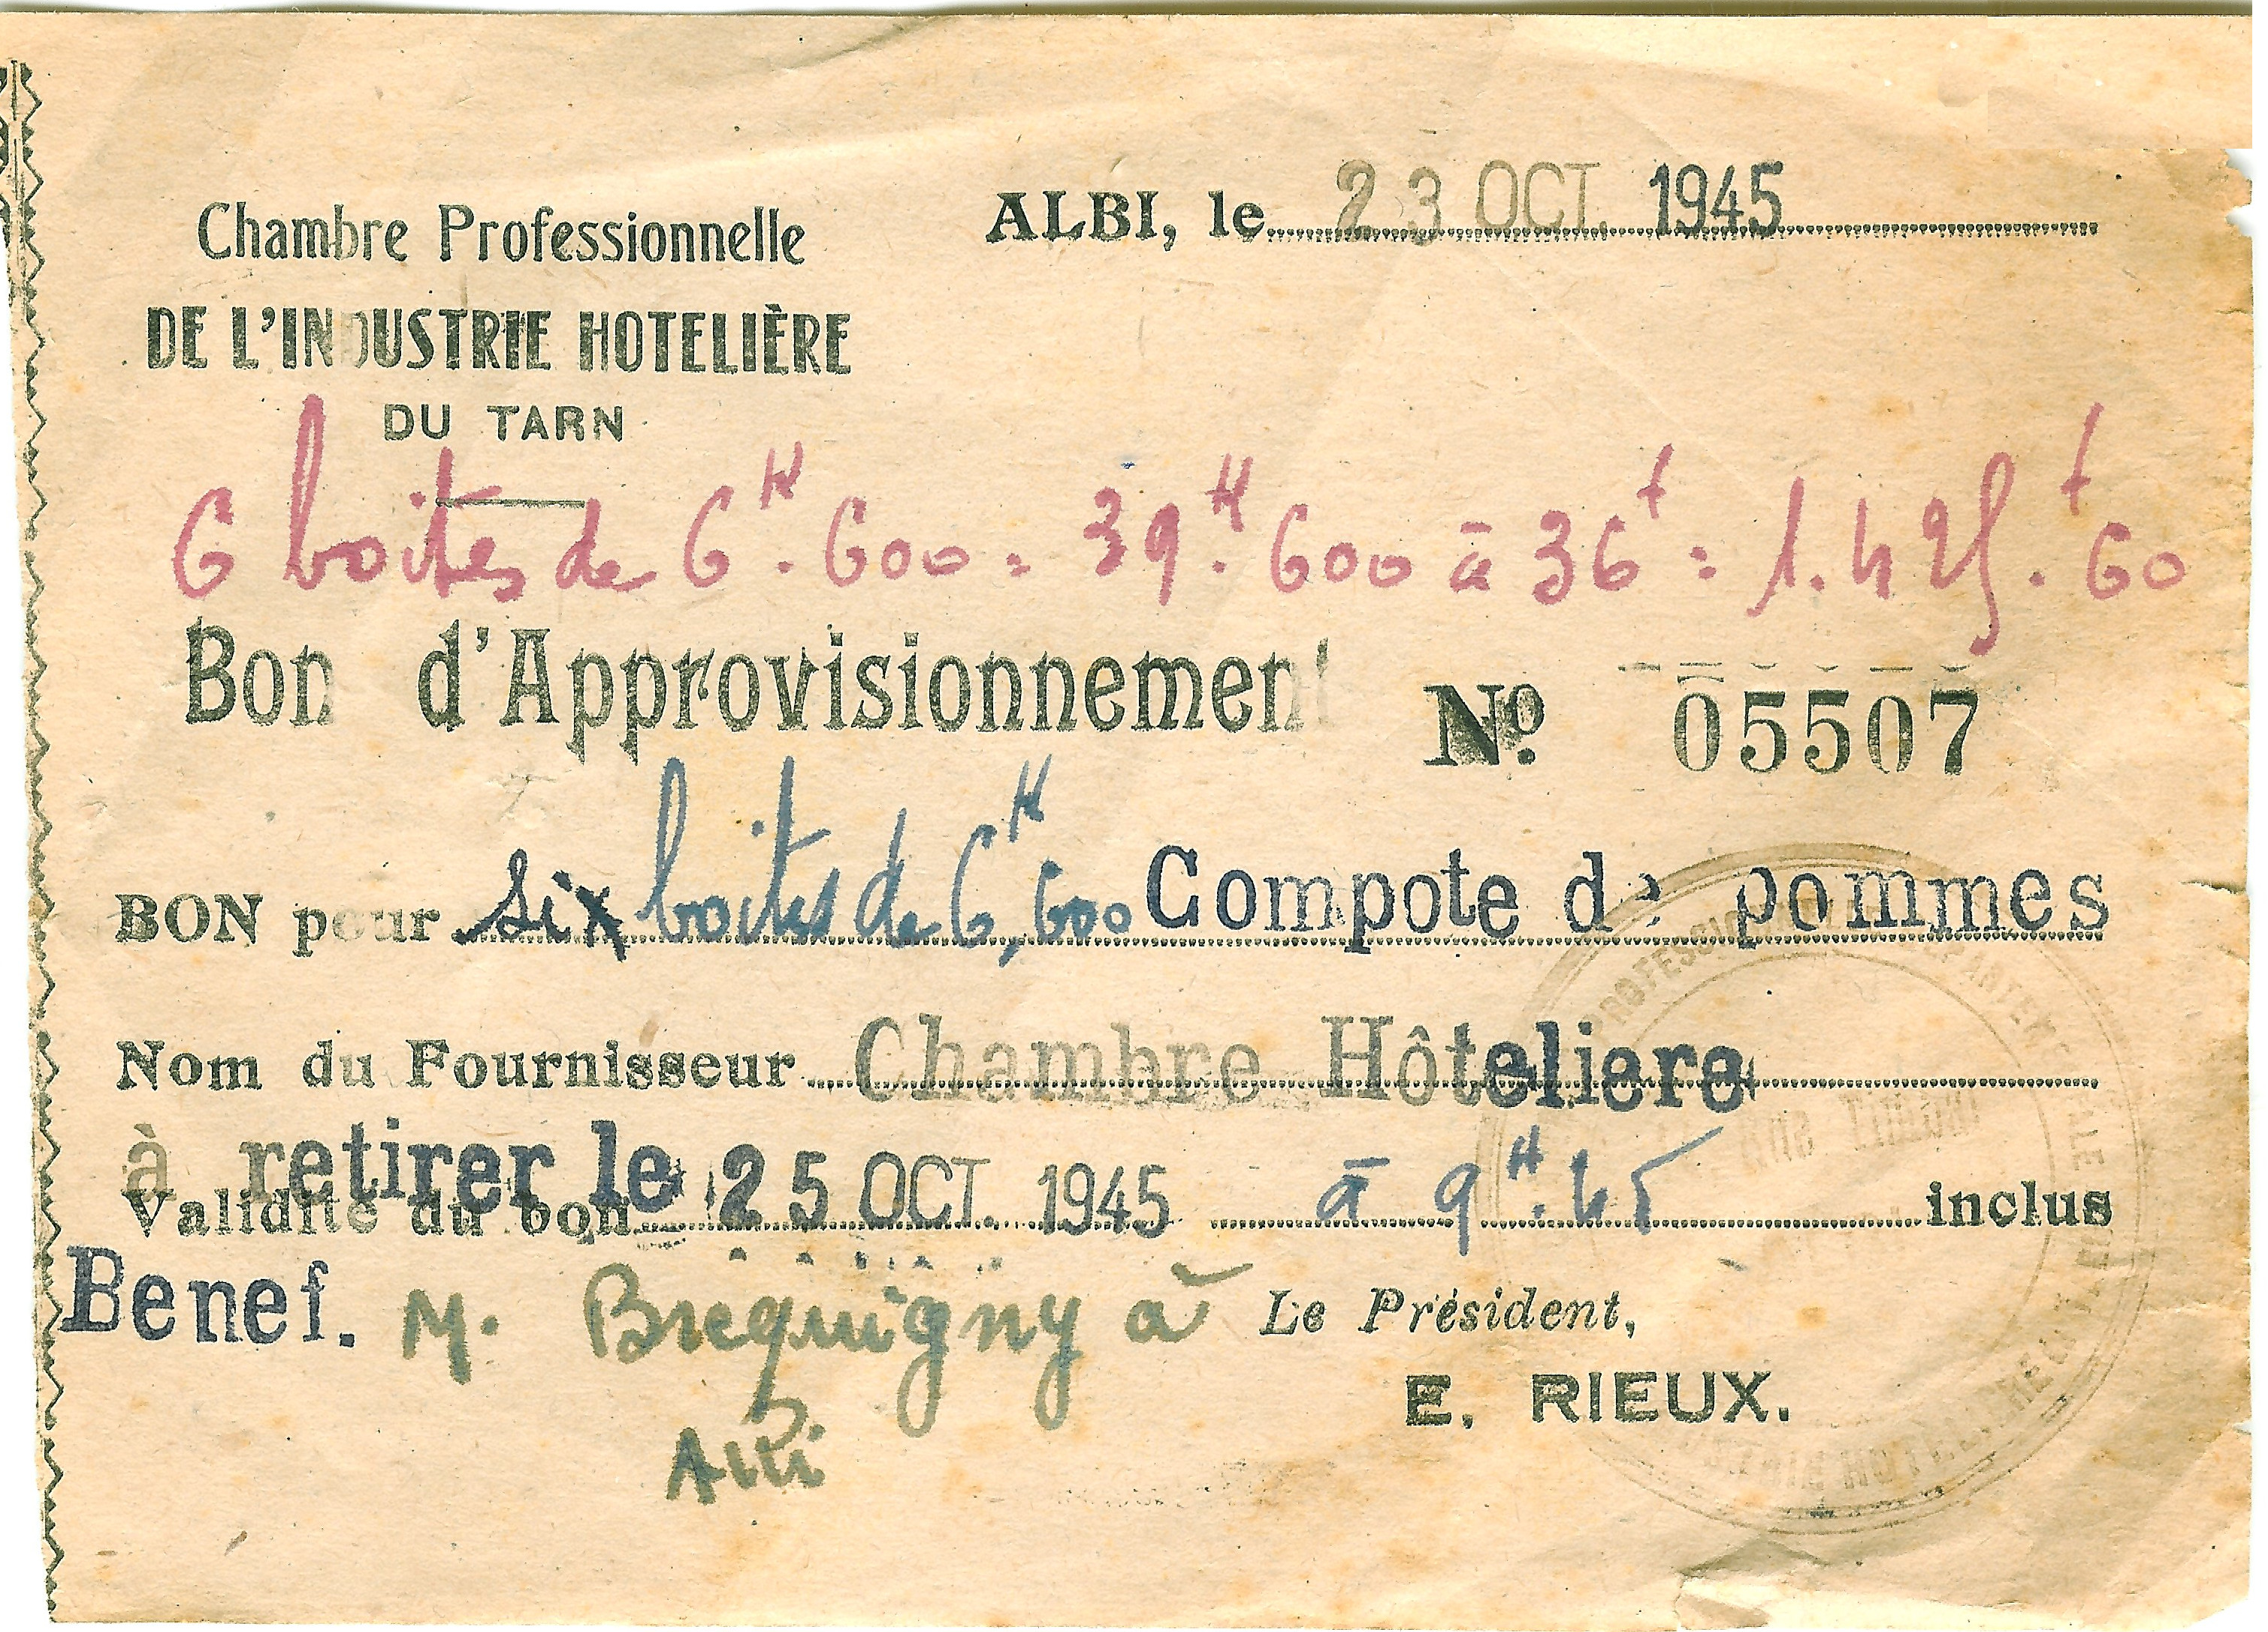 Chambre Professionnelle
DE L'INDUSTRIE HOTELIÈRE
DU TARN
ALBI, le 23 OCT. 1945
6 boites de 6K.600 = 39K.600 à 36f = 1.425f.60
Bon d'Approvisionnement No 05507
BON pour six boites de 6K,600 Compote de pommes
Nom du Fournisseur Chambre Hôteliere
à retirer le
Validité du bon 25 OCT. 1945 à 9H.45 inclus
Benef. M. Brequigny à
Albi
Le Président,
E. RIEUX.